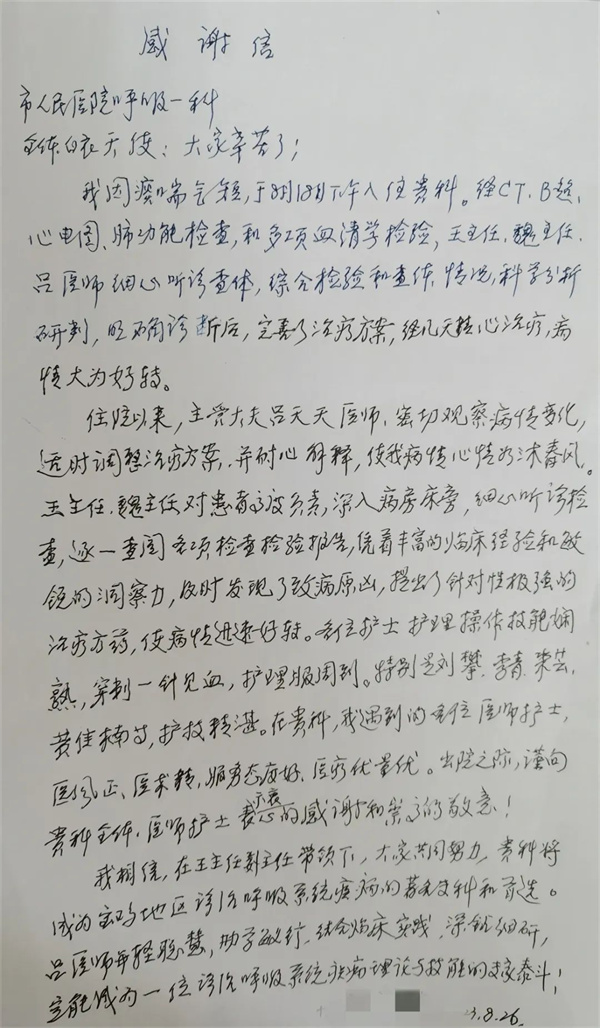 感谢信
市人民医院呼吸一科
全体白衣天使：大家辛苦了！
我因痰喘气短，于8月18日下午入住贵科。经CT、B超、
心电图、肺功能检查，和多项血清学检验，王主任、魏主任、
吕医师细心听诊查体，综合检验和查体情况，科学分析
研判，明确诊断后，完善了治疗方案，经几天精心治疗，病
情大为好转。
住院以来，主管大夫吕天天医师，密切观察病情变化，
适时调整治疗方案，并耐心解释，使我病情心情如沐春风。
王主任、魏主任对患者高度负责，深入病房床旁，细心听诊检
查，逐一查阅各项检查检验报告，凭着丰富的临床经验和敏
锐的洞察力，及时发现了致病原凶，提出了针对性极强的
治疗方药，使病情迅速好转。各位护士护理操作技能娴
熟，穿刺一针见血，护理服周到。特别是刘攀、李青、荣芸、
黄佳楠等，护技精湛。在贵科，我遇到的各位医师护士，
医风正、医术精，服务态度好、医疗优量优。出院之际，谨向
贵科全体医师护士表示衷心的感谢和崇高的敬意！
我相信，在王主任魏主任带领下，大家共同努力，贵科将
成为宝鸡地区诊治呼吸系统疾病的著名专科和首选。
吕医师年轻聪慧，勤学敏行，结合临床实践，深钻细研，
定能成为一位诊治呼吸系统疾病理论与技能的专家泰斗！
3.8.26.